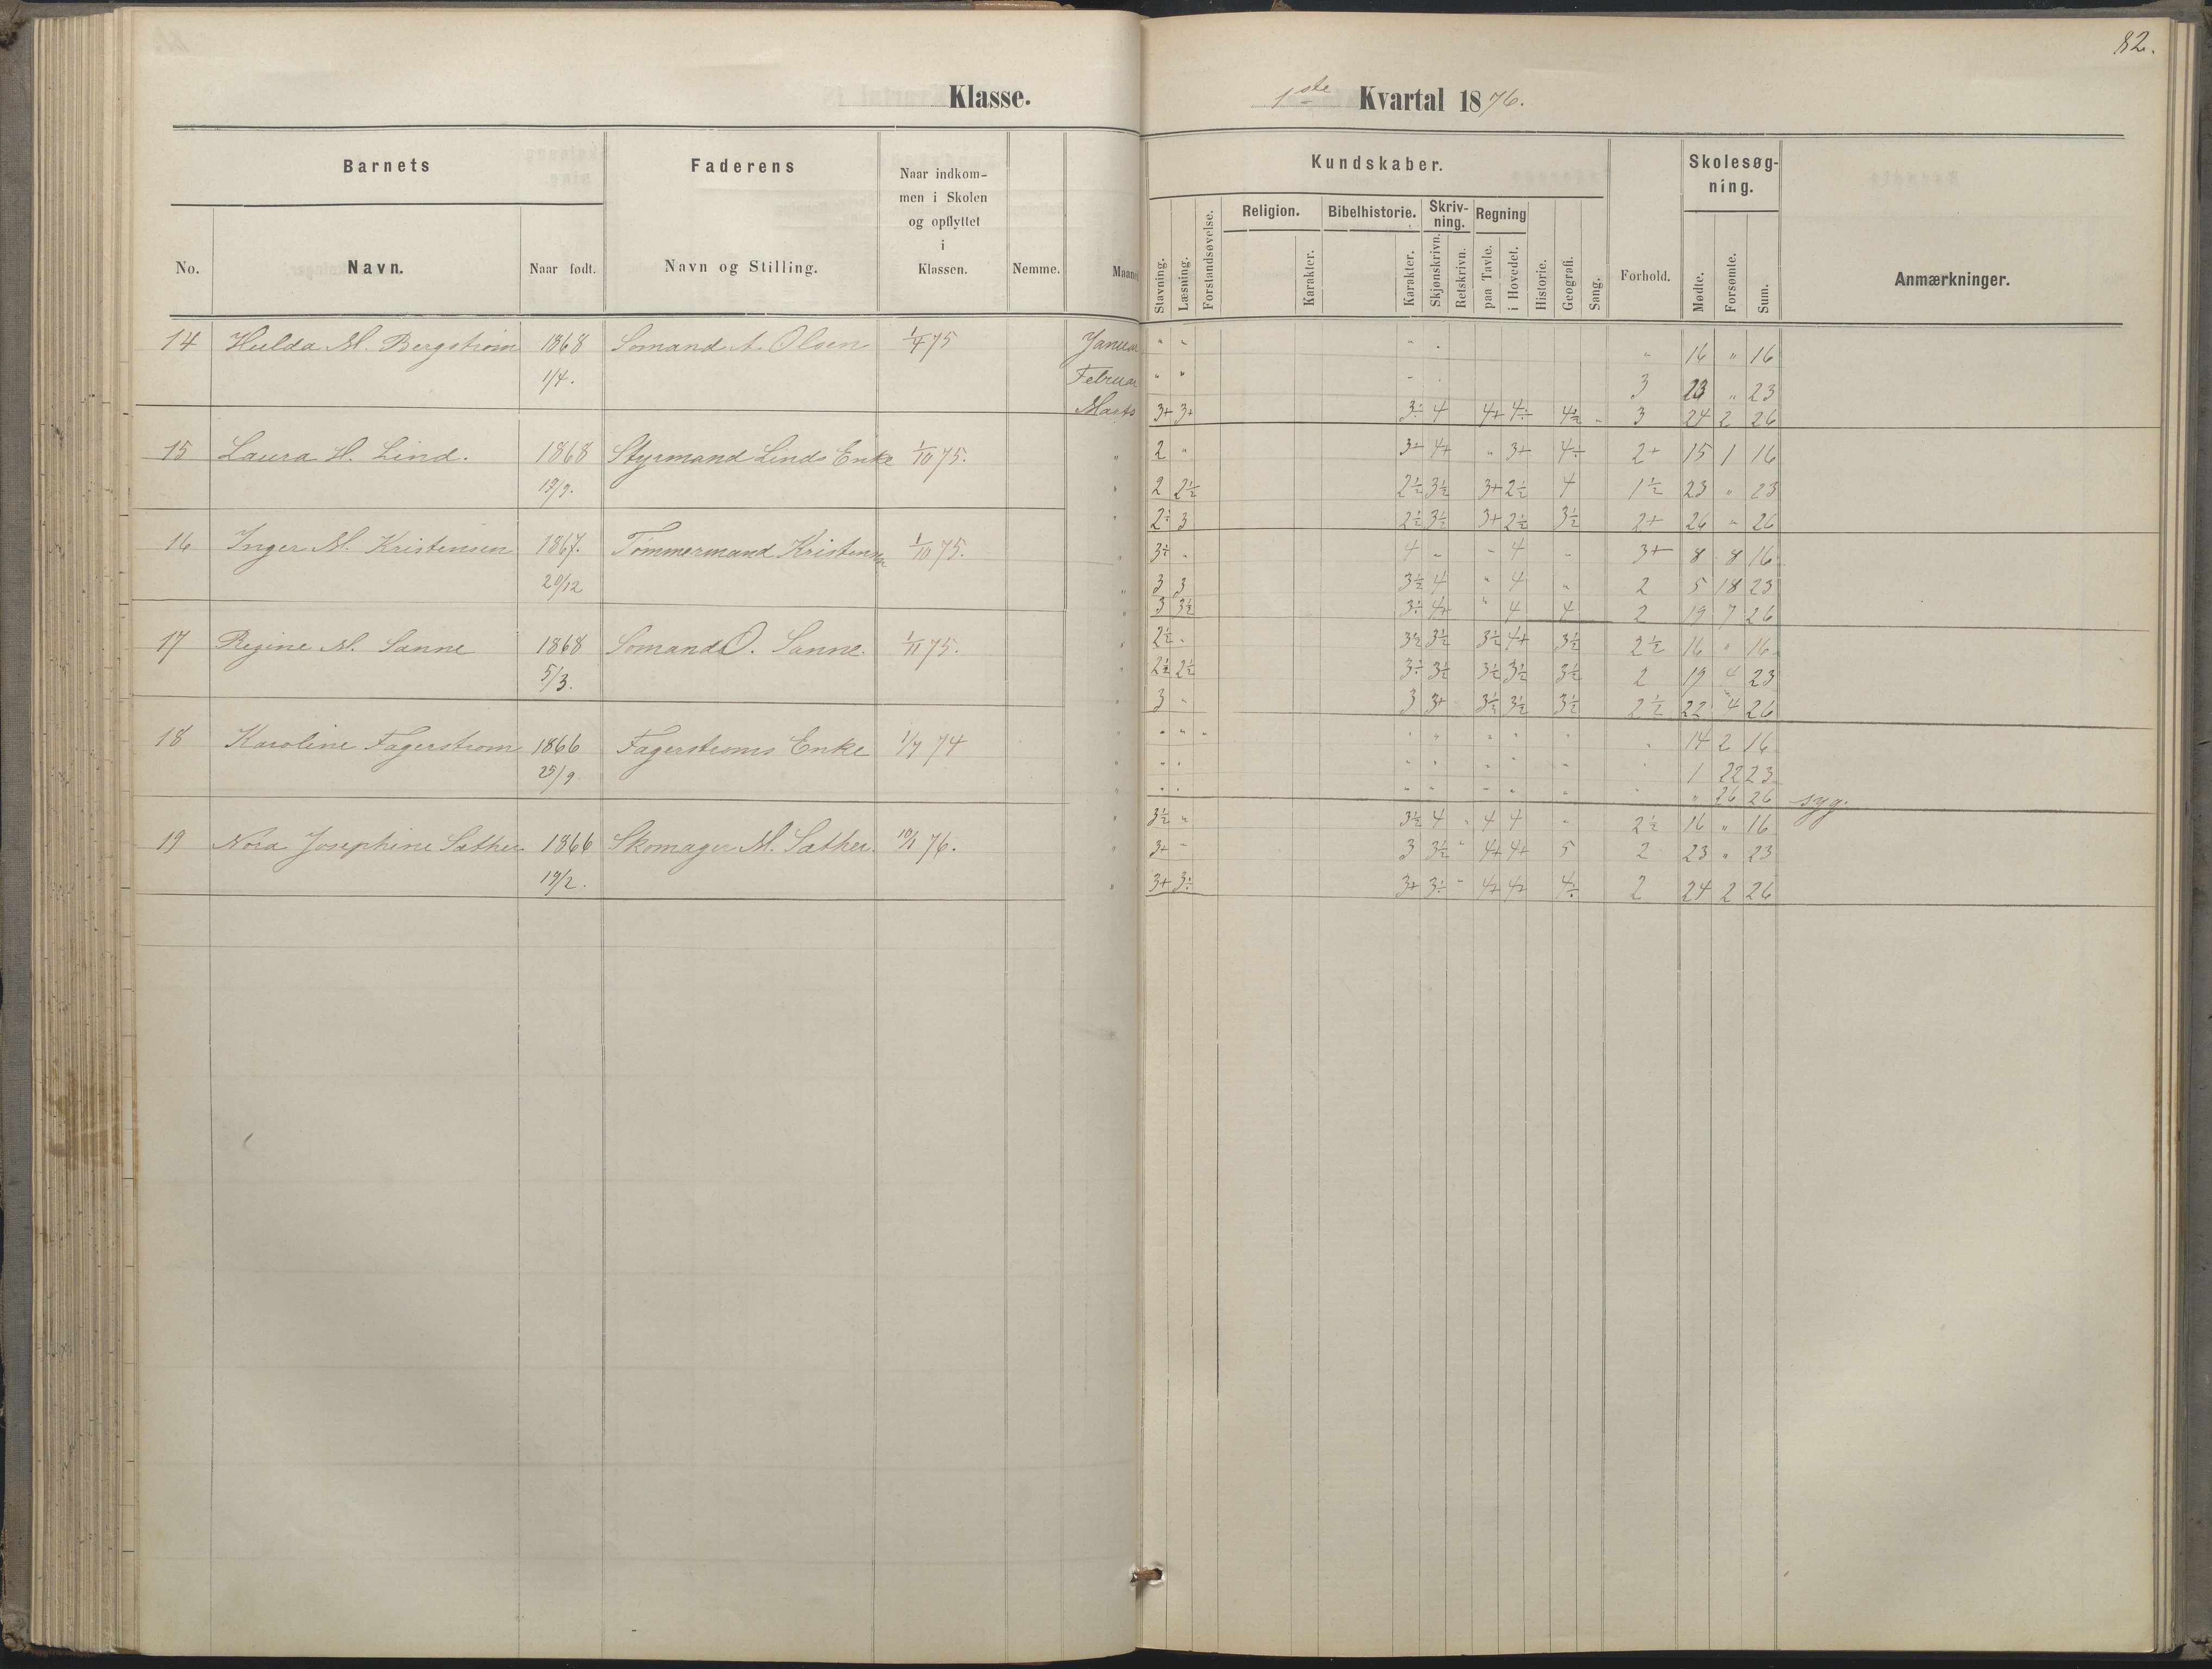 82.
Klasse. 1ste Kvartal 1876.
Barnets Faderens Naar indkommen i Skolen og opflyttet i Klassen. Nemme. Maaned Kundskaber. Forhold. Skolesøgning. Anmærkninger.
No. Navn. Naar født. Navn og Stilling. Stavning. Læsning. Forstandsøvelse. Religion. Karakter. Bibelhistorie. Karakter. Skrivning. Skjønskrivn. Retskrivn. Regning paa Tavle. i Hovedet. Historie. Geografi. Sang. Mødte. Forsømte. Sum.
14 Hulda M. Bergstrøm 1868 Sømand A. Olsen 1/4 75 Januar " " " " " 16 " 16
1/4. Februar " " " " 3 23 " 23
Marts 3+ 3+ 3÷ 4 4+ 4÷ 4½ 3 24 2 26
15 Laura H. Lind. 1868 Styrmand Linds Enke 1/10 75. " 2 " 3+ 4+ " 3+ 4÷ 2+ 15 1 16
19/9. " 2 2½ 2½ 3½ 3+ 2½ 4 1½ 23 " 23
" 2÷ 3 2½ 3½ 3+ 2½ 3½ 2+ 26 " 26
16 Inger M. Kristensen 1867. Tømmermand Kristensen 1/10 75. " 3÷ " 4 " " 4 " 3+ 8 8 16
20/12 " 3 3 3½ 4 " 4 " 2 5 18 23
" 3 3½ 3÷ 4+ " 4 4 2 19 7 26
17 Regine M. Sanne 1868 Sømand O. Sanne. 1/11 75. " 2½ " 3½ 3½ 3½ 4+ 3½ 2½ 16 " 16
5/3. " 2½ 2½ 3÷ 3½ 3½ 3½ 3½ 2 19 4 23
" 3 " 3 3+ 3½ 3½ 3½ 2½ 22 4 26
18 Karoline Fagerstrøm 1866 Fagerstrøms Enke 1/7 74 " " " " " " " " " " 14 2 16
25/9. " " " " " " " " " 1 22 23
" " " " " " " " " " 26 26 syg.
19 Nora Josephine Sæther 1866 Skomager M. Sæther. 10/1 76. " 3½ " 3½ 4 " 4 4 " 2½ 16 " 16
19/2. " 3+ " 3 3½ " 4+ 4+ 5 2 23 " 23
" 3+ 3÷ 3+ 3÷ " 4+ 4+ 4÷ 2 24 2 26